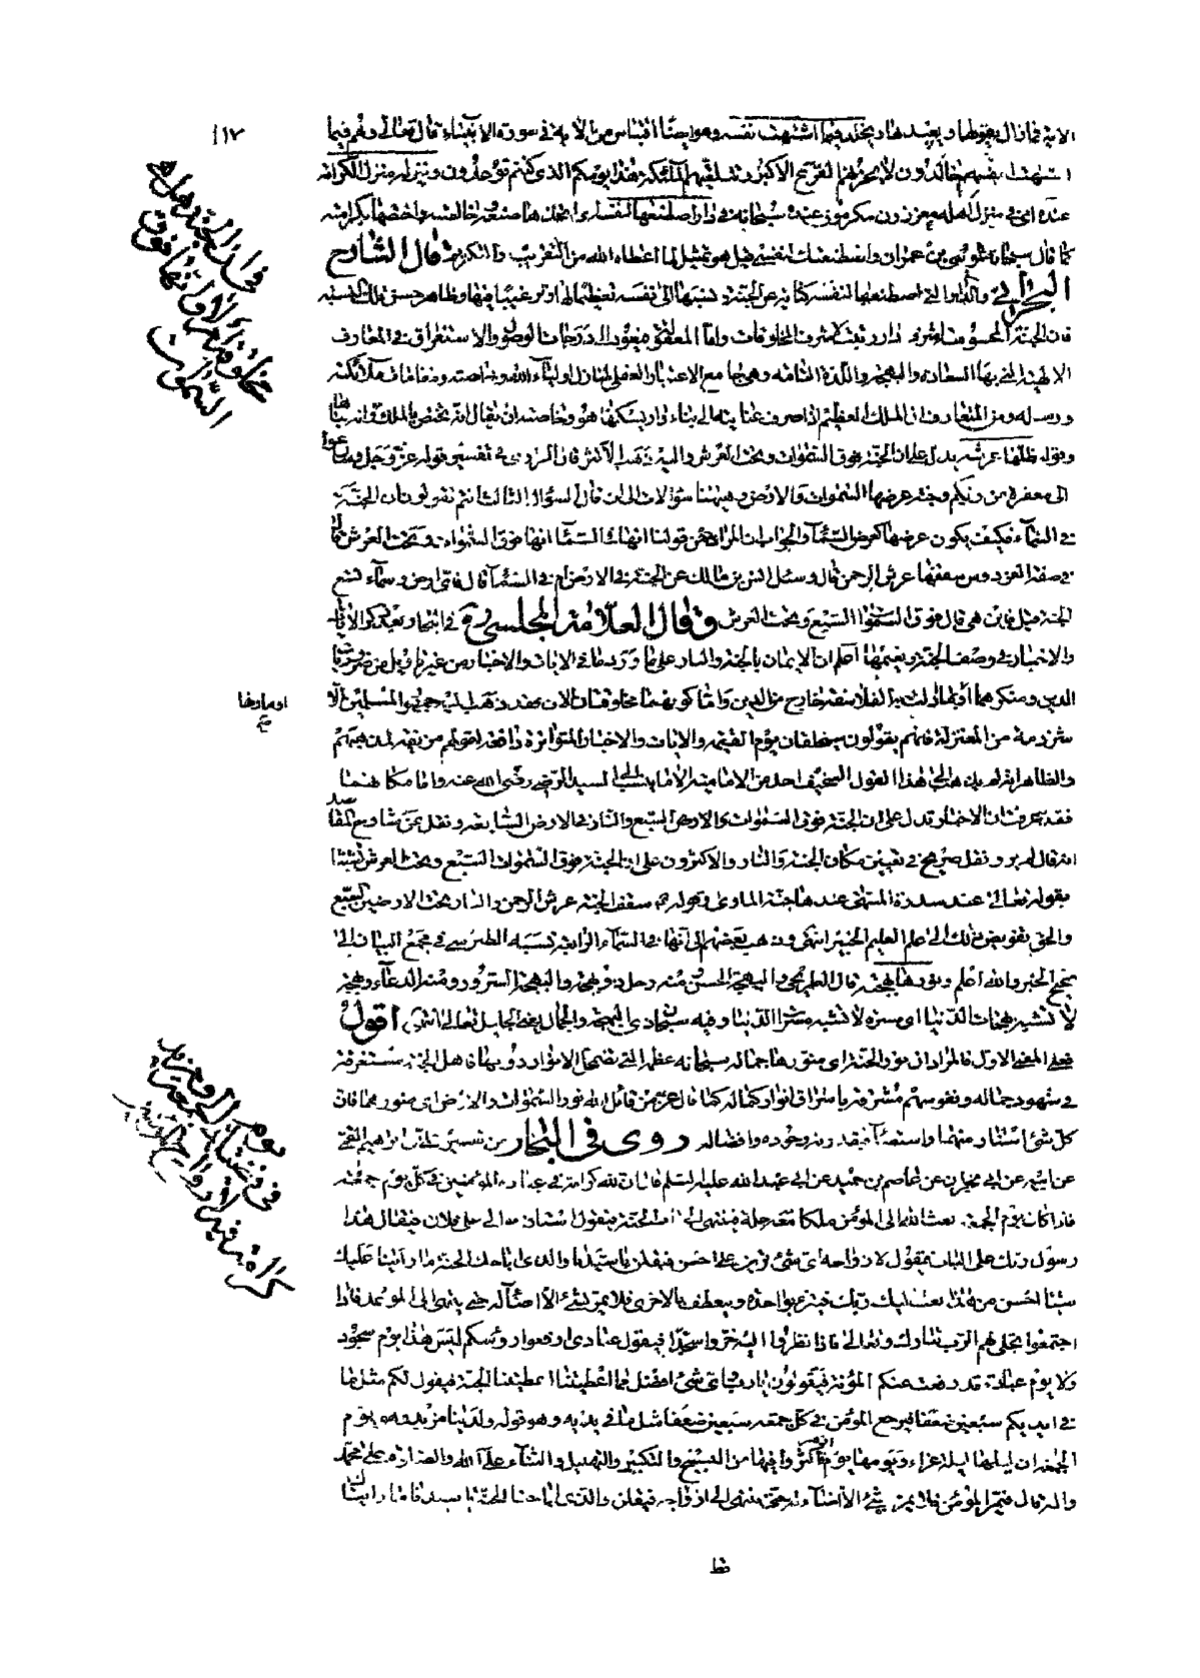 ١١٢
الآية فما زال يفوقها ويعيدها ويخلد فيما اشتهت نفسه وهو ايضا اقتباس من الآية في سورة الانبياء قال تعالى وهم فيما
اشتهت انفسهم خالدون لا يحزنهم الفزع الاكبر وتتلقيهم الملائكة هذا يومكم الذي كنتم توعدون ونيزله منزل الكرامة
عنده اي في منزل اهله معززون مكرمون عنده سبحانه في دار اصطنعها لنفسه اي اتخذها صنعته خالصته واختصها بكرامته
كما قال سبحانه لموسى بن عمران واصطنعتك لنفسي قيل هو تمثيل لما اعطاه الله من التقريب والتكريم قال الشارح
البحراني والدار التي اصطنعها لنفسه كناية عن الجنة ونسبها الى نفسه تعظيما لها وترغيبا فيها وظاهر حسن تلك النسبة
فان الجنة المحسوسة اشرف دار رتبت لاشرف المخلوقات واما المعقولة فيعود الى درجات الوصول والاستغراق في المعارف
الالهية التي بها السعادة والبهجة واللذة التامة وهي جامع الاعتبار العقلي لمنازل اولياء الله وخاصته ومقامات ملائكته
ورسله ومن المتعارف ان الملك العظيم اذا صرف عنايته الى بناء دار يسكنها هو وخاصته ان يقال انه يختص بالملك وانه بناها
وقوله ظلها عرشه يدل على ان الجنة فوق السموات وتحت العرش واليه ذهب الاكثر قال الرازي في تفسير قوله عز وجل وسارعوا
الى مغفرة من ربكم وجنة عرضها السموات والارض وههنا سؤالات الى ان قال السؤال الثالث انتم تقولون ان الجنة
في السماء فكيف يكون عرضها كعرض السماء والجواب ان المراد من قولنا انها في السماء انها فوق السموات وتحت العرش قال
في صفة الفردوس سقفها عرش الرحمن قال وسئل انس بن مالك عن الجنة في الارض ام في السماء قال فاي ارض وسماء تسع
الجنة قيل فاين هي قال فوق السموات السبع وتحت العرش وقال العلامة المجلسي ره في البحار بعد ذكر الآيات
والاخبار في وصف الجنة ونعيمها اعلم ان الايمان بالجنة والنار على ما وردتا في الآيات والاخبار من غير تاويل من ضروريات
الدين ومنكرهما او مأولهما بما اولت به الفلاسفة خارج من الدين واما كونهما مخلوقتان الآن فقد ذهب اليه جمهور المسلمين الا
شرذمة من المعتزلة فانهم يقولون سيخلقان يوم القيمة والآيات والاخبار المتواترة دافعة لقولهم مزيفة لمذهبهم
والظاهر انه لم يذهب الى هذا القول السخيف احد من الامامية الا ما ينسب الى السيد المرتضى رضي الله عنه واما مكانهما
فقد عرفت ان الاخبار تدل على ان الجنة فوق السموات السبع والنار في الارض السابعة ونقل عن شارح المقاصد
انه قال لم يرد نقل صريح في تعيين مكان الجنة والنار والاكثرون على ان الجنة فوق السموات السبع وتحت العرش تشبثا
بقوله تعالى عند سدرة المنتهى عندها جنة الماوى وقوله ص سقف الجنة عرش الرحمن والنار تحت الارضين السبع
والحق تفويض ذلك الى علم العليم الخبير انتهى وذهب بعضهم الى انها في السماء الرابعة نسبه الطبرسي في مجمع البيان الى
صحيح الخبر والله اعلم ونورها بهجته قال الطريحي والبهجة الحسن ومنه رجل ذو بهجة والبهجة السرور ومنه الدعاء وبهجة
لا تشبه بهجات الدنيا اي مسرة لا تشبه مسرات الدنيا وفيه سبحان ذي البهجة والجمال يعني الجليل تعالى انتهى اقول
فعلى المعنى الاول فالمراد ان نور الجنة اي منورها جماله سبحانه عظم التي تضمحل الانوار دونها فان اهل الجنة مستغرقة
في شهود جماله ونفوسهم مشرقة باشراق انوار كماله كما قال عز من قائل الله نور السموات والارض اي منورهما فان
كل شيء استنار منهما واستضاء فبقدرته وجوده وافضاله روى في البحار من تفسير علي بن ابراهيم القمي
عن ابيه عن ابن ابي نجران عن عاصم بن حميد عن ابي عبد الله عليه السلم قال ان لله كرامة في عباده المؤمنين في كل يوم جمعة
فاذا كان يوم الجمعة بعث الله الى المؤمن ملكا معه حلة فينتهي الى باب الجنة فيقول استأذنوا لي على فلان فيقال هذا
رسول ربك على الباب فيقول لازواجه اي شيء ترين علي احسن فيقلن يا سيدنا والذي اباحك الجنة ما راينا عليك
شيئا احسن من هذا بعث اليك ربك فيتزر بواحدة ويتعطف بالاخرى فلا يمر بشيء الا اضاء له حتى ينتهي الى الموعد فاذا
اجتمعوا تجلى لهم الرب تبارك وتعالى فاذا نظروا اليه خروا سجدا فيقول عبادي ارفعوا رؤسكم ليس هذا يوم سجود
ولا يوم عبادة قد رفعت عنكم المؤنة فيقولون يا رب واي شيء افضل مما اعطيتنا اعطيتنا الجنة فيقول لكم مثل ما
في ايديكم سبعين ضعفا فيرجع المؤمن في كل جمعة سبعين ضعفا مثل ما في يديه وهو قوله ولدينا مزيد وهو يوم
الجمعة ان ليلتها ليلة غراء ويومها يوم ازهر فاكثروا فيها من التسبيح والتكبير والتهليل والثناء على الله والصلاة على محمد
واله قال فيمر المؤمن فلا يمر بشيء الا اضاء له حتى ينتهي الى ازواجه فيقلن والذي اباحنا الجنة يا سيدنا ما راينا
قط
في ان الجنة هل هي
مخلوقة الآن وانها فوق
السموات
يوم الجمعة
كرامة